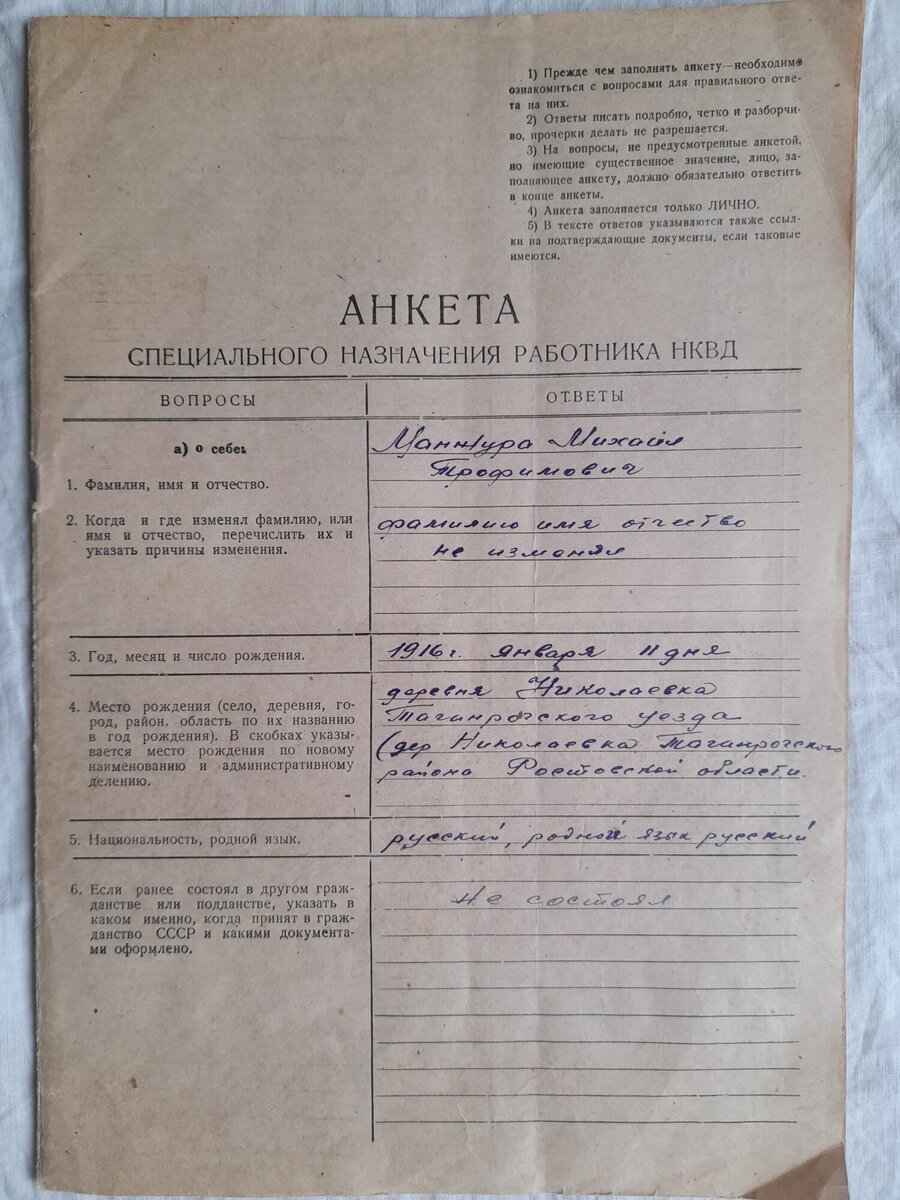 1) Прежде чем заполнять анкету—необходимо
ознакомиться с вопросами для правильного отве-
та на них.
2) Ответы писать подробно, четко и разборчи-
во, прочерки делать не разрешается.
3) На вопросы, не предусмотренные анкетой,
но имеющие существенное значение, лицо, за-
полняющее анкету, должно обязательно ответить
в конце анкеты.
4) Анкета заполняется только ЛИЧНО.
5) В тексте ответов указываются также ссыл-
ки на подтверждающие документы, если таковые
имеются.
АНКЕТА
СПЕЦИАЛЬНОГО НАЗНАЧЕНИЯ РАБОТНИКА НКВД
ВОПРОСЫ
ОТВЕТЫ
а) о себе:
1. Фамилия, имя и отчество.
Манжура Михаил
Трофимович
2. Когда и где изменял фамилию, или
имя и отчество, перечислить их и
указать причины изменения.
фамилию имя отчество
не изменял
3. Год, месяц и число рождения.
1916 г. января 11 дня
4. Место рождения (село, деревня, го-
род, район, область по их названию
в год рождения). В скобках указы-
вается место рождения по новому
наименованию и административному
делению.
деревня Николаевка
Таганрогского уезда
(дер Николаевка Таганрогского
района Ростовской области.
5. Национальность, родной язык.
русский, родной язык русский
6. Если ранее состоял в другом граж-
данстве или подданстве, указать в
каком именно, когда принят в граж-
данство СССР и какими документа-
ми оформлено.
Не состоял